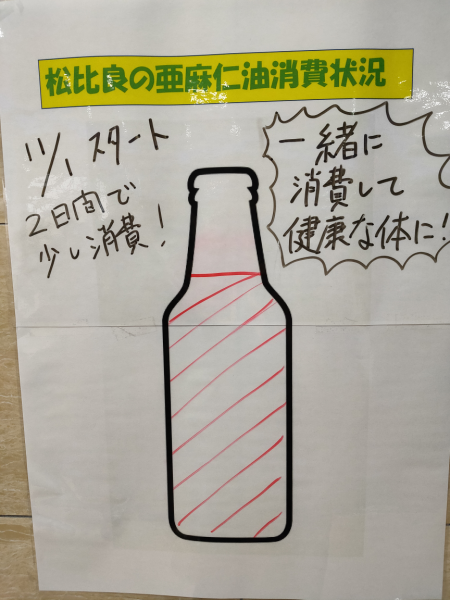 松比良の亜麻仁油消費状況
11/1 スタート
2日間で
少し消費!
一緒に
消費して
健康な体に!